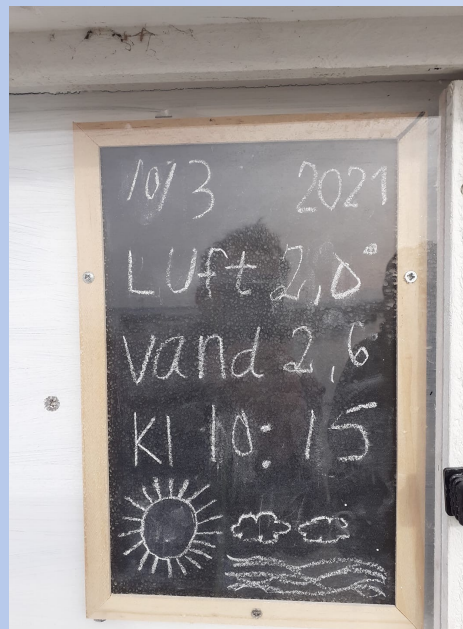 10/3 2021
Luft 2,0°
Vand 2,6°
Kl 10:15